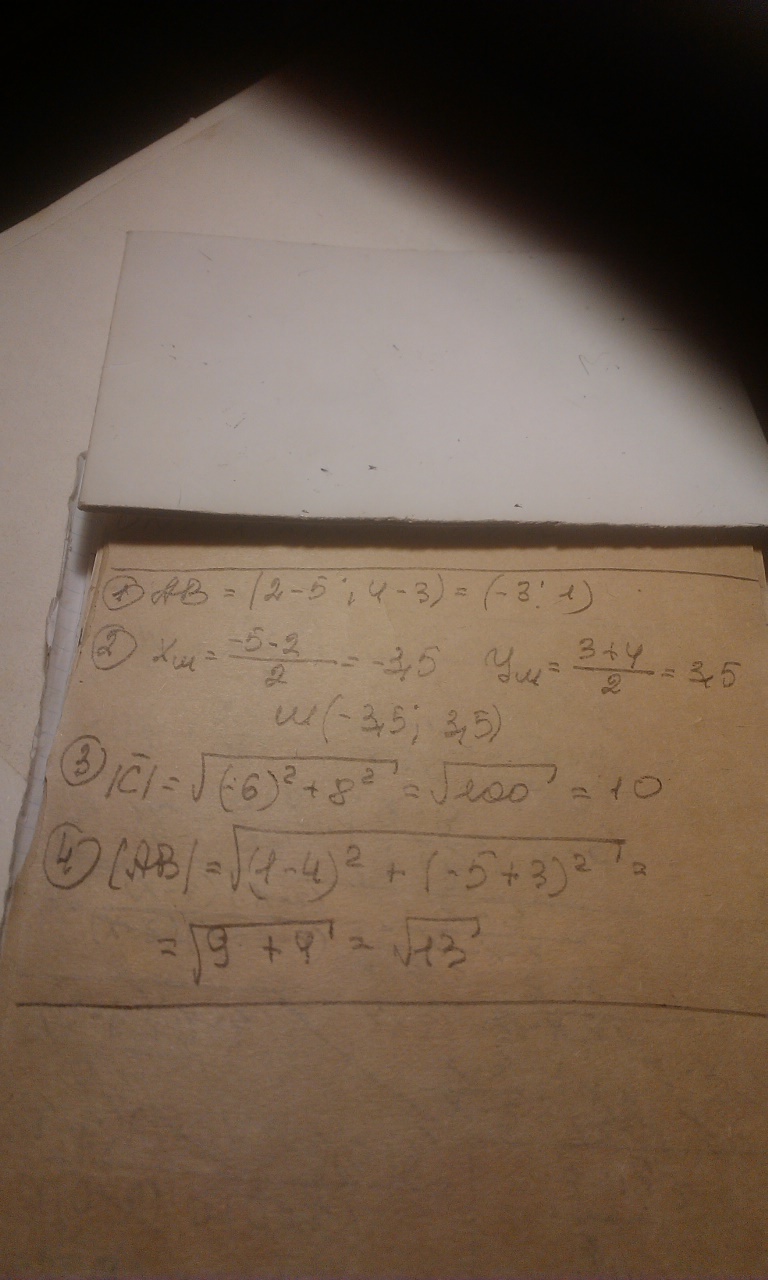 ① AB = (2-5; 4-3) = (-3; 1)
② Xм = -5-2/2 = -3,5 Yм = 3+4/2 = 3,5
М(-3,5; 3,5)
③ |C̅| = √(-6)²+8² = √100 = 10
④ |AB| = √(1-4)² + (-5+3)² =
= √9+4 = √13